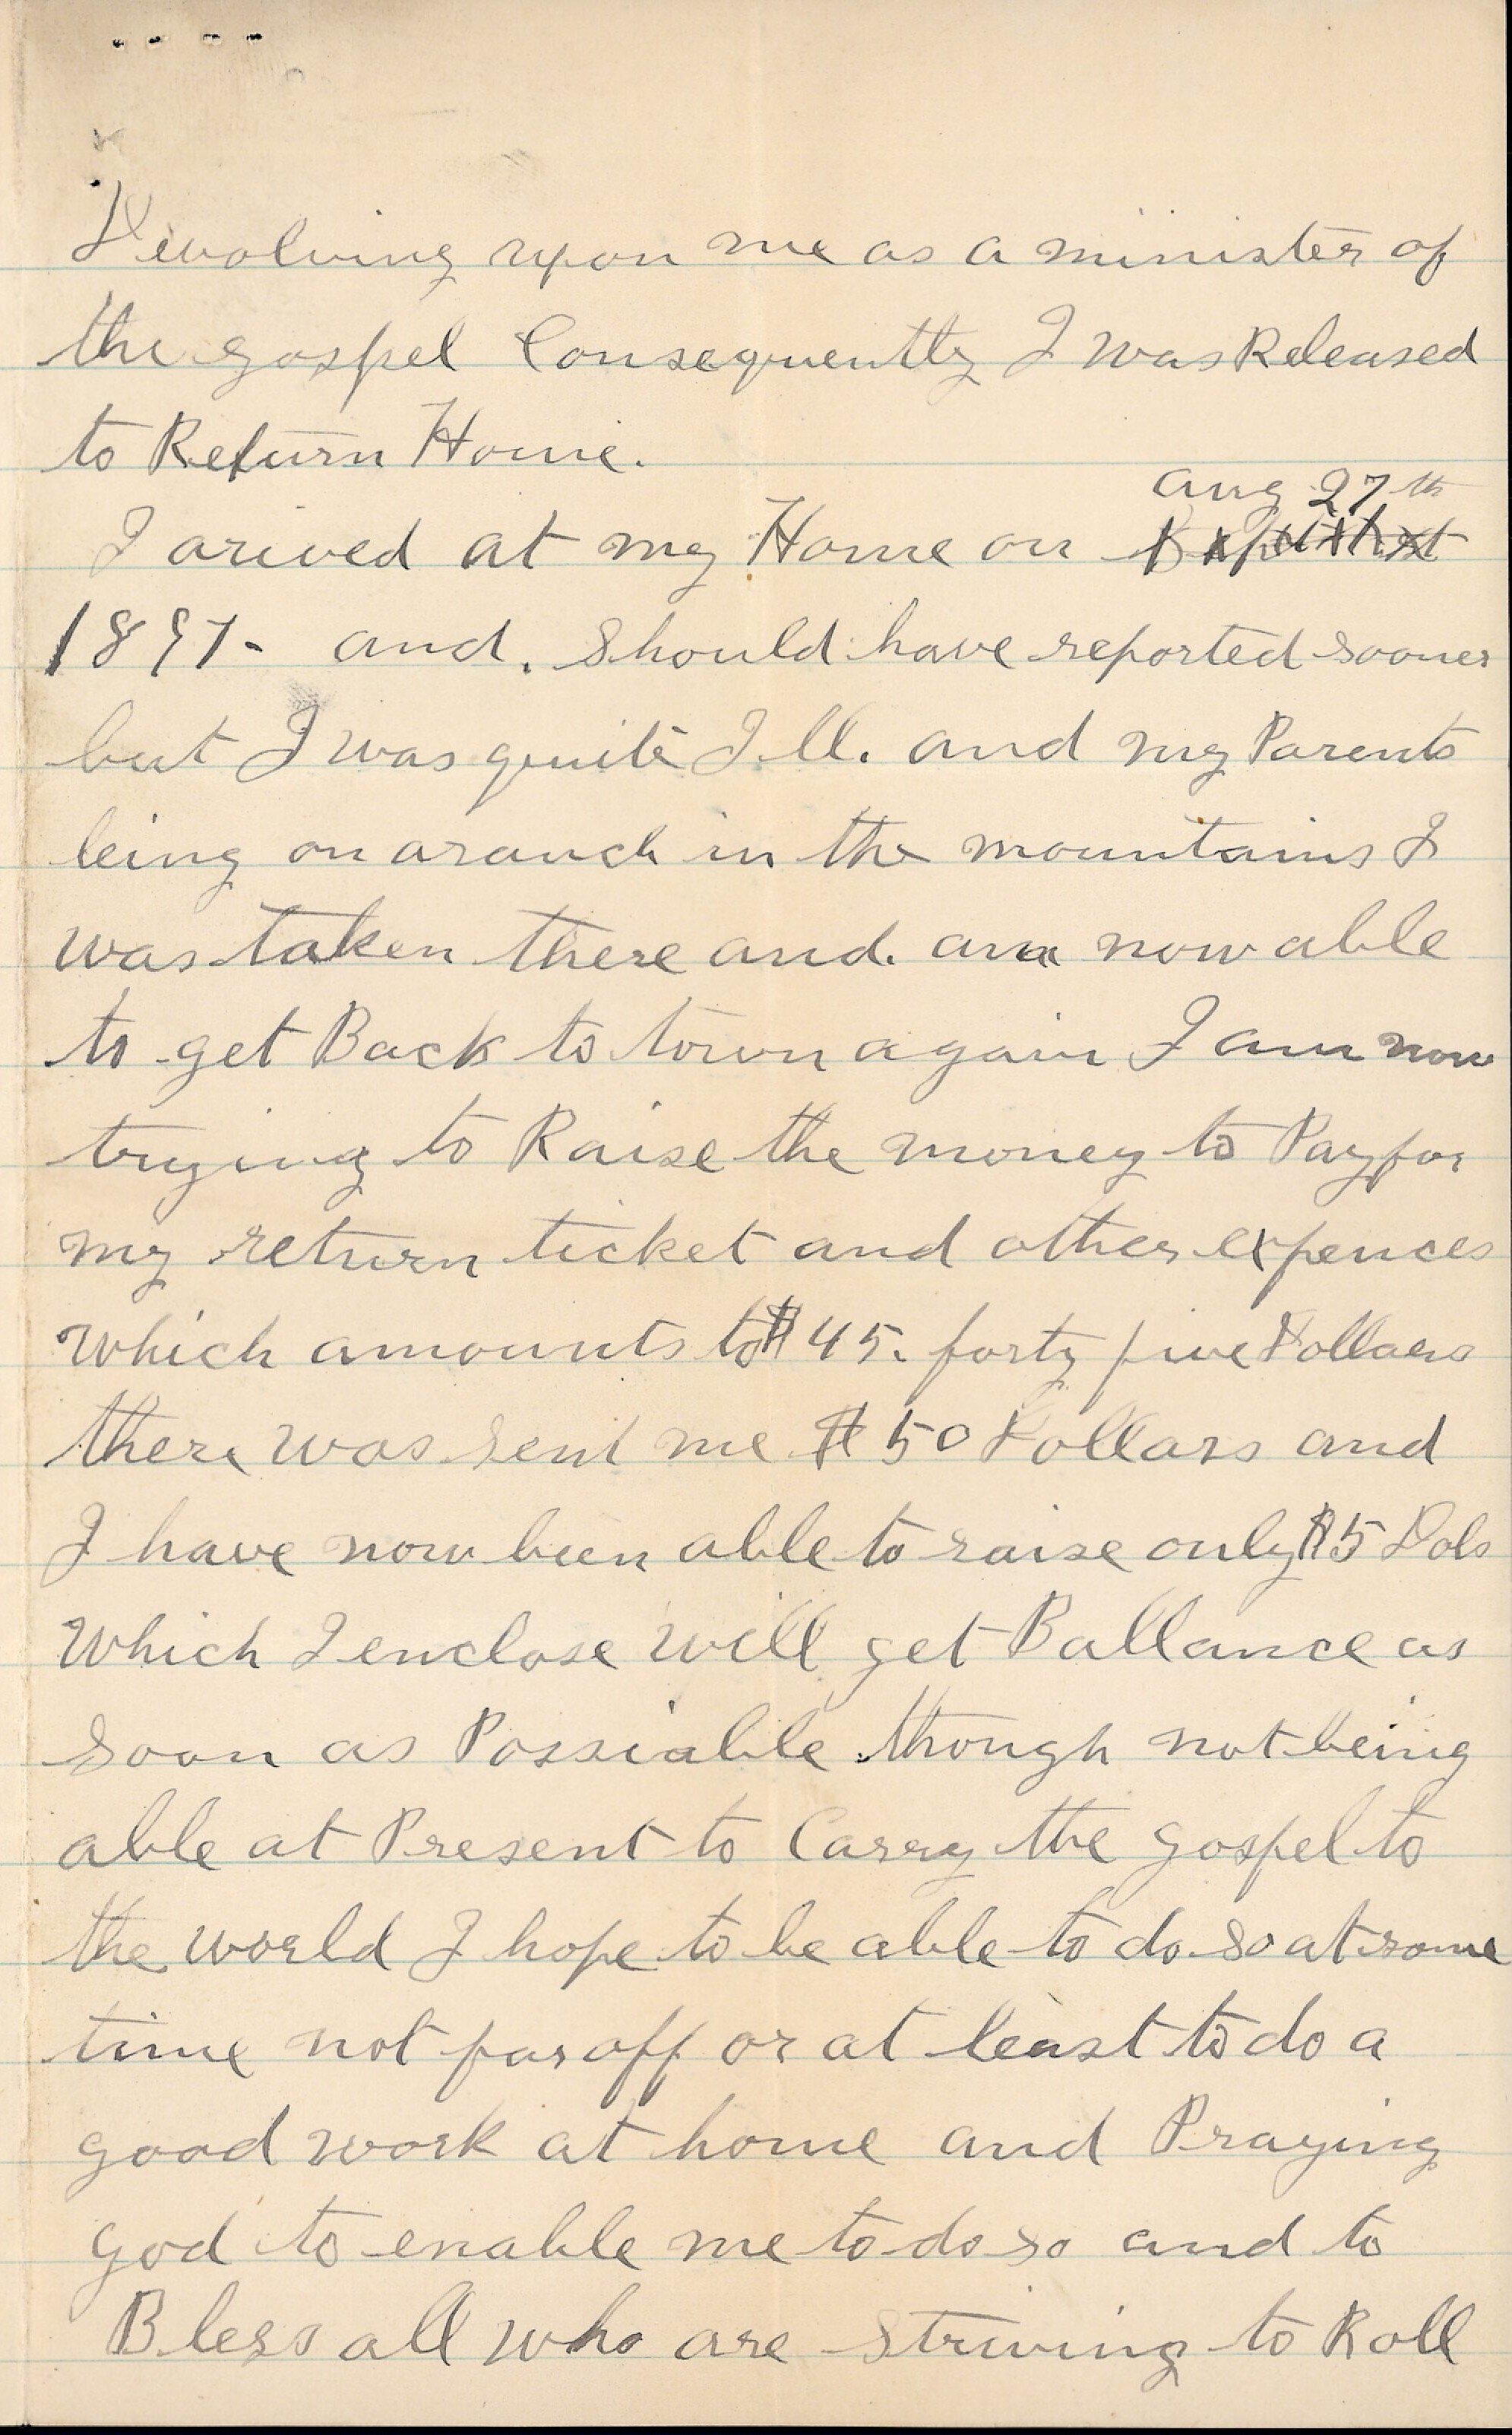 Devolving upon me as a minister of
the gospel Consequently I was Released
to Return Home.
aug 27th
I arived at my Home on
1897- and. Should have reported sooner
but I was quite Ill. and my Parents
being on a ranch in the mountains I
was taken there and. am now able
to get Back to town again I am now
trying to Raise the money to Pay for
my return ticket and other expences
which amounts to $45. forty five Dollars
there was sent me $50 Dollars and
I have now been able to raise only $5 Dols
Which I enclose will get Ballance as
soon as Possiable though not being
able at Present to Carry the gospel to
the world I hope to be able to do so at some
time not far off or at least to do a
good work at home and Praying
god to enable me to do so and to
Bless all who are striving to Roll